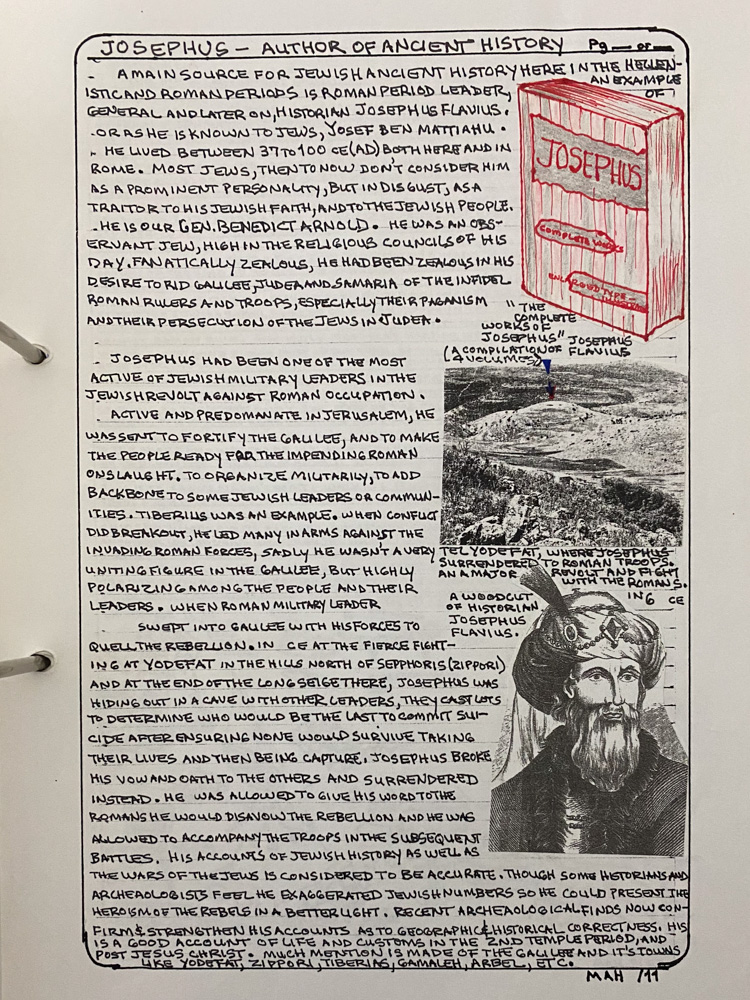 JOSEPHUS — AUTHOR OF ANCIENT HISTORY Pg __ of __
- A MAIN SOURCE FOR JEWISH ANCIENT HISTORY HERE IN THE HELLEN-
ISTIC AND ROMAN PERIODS IS ROMAN PERIOD LEADER,
GENERAL AND LATER ON, HISTORIAN JOSEPHUS FLAVIUS.
- OR AS HE IS KNOWN TO JEWS, YOSEF BEN MATTIAHU.
- HE LIVED BETWEEN 37 TO 100 CE (AD) BOTH HERE AND IN
ROME. MOST JEWS, THEN TO NOW DON'T CONSIDER HIM
AS A PROMINENT PERSONALITY, BUT IN DISGUST, AS A
TRAITOR TO HIS JEWISH FAITH, AND TO THE JEWISH PEOPLE.
- HE IS OUR GEN. BENEDICT ARNOLD. HE WAS AN OBS-
ERVANT JEW, HIGH IN THE RELIGIOUS COUNCILS OF HIS
DAY. FANATICALLY ZEALOUS, HE HAD BEEN ZEALOUS IN HIS
DESIRE TO RID GALILEE, JUDEA AND SAMARIA OF THE INFIDEL
ROMAN RULERS AND TROOPS, ESPECIALLY THEIR PAGANISM
AND THEIR PERSECUTION OF THE JEWS IN JUDEA.
AN EXAMPLE
OF
JOSEPHUS
COMPLETE WORKS
ENLARGED TYPE
"THE
COMPLETE
WORKS OF
JOSEPHUS" JOSEPHUS
(A COMPILATION OF FLAVIUS
4 VOLUMES)
- JOSEPHUS HAD BEEN ONE OF THE MOST
ACTIVE OF JEWISH MILITARY LEADERS IN THE
JEWISH REVOLT AGAINST ROMAN OCCUPATION.
- ACTIVE AND PREDOMANATE IN JERUSALEM, HE
WAS SENT TO FORTIFY THE GALILEE, AND TO MAKE
THE PEOPLE READY FOR THE IMPENDING ROMAN
ONSLAUGHT. TO ORGANIZE MILITARILY, TO ADD
BACKBONE TO SOME JEWISH LEADERS OR COMMUN-
ITIES. TIBERIUS WAS AN EXAMPLE. WHEN CONFLICT
DID BREAKOUT, HE LED MANY IN ARMS AGAINST THE
INVADING ROMAN FORCES, SADLY HE WASN'T A VERY
UNITING FIGURE IN THE GALILEE, BUT HIGHLY
POLARIZING AMONG THE PEOPLE AND THEIR
LEADERS. WHEN ROMAN MILITARY LEADER
SWEPT INTO GALILEE WITH HIS FORCES TO
QUELL THE REBELLION. IN CE AT THE FIERCE FIGHT-
ING AT YODEFAT IN THE HILLS NORTH OF SEPPHORIS (ZIPPORI)
AND AT THE END OF THE LONG SEIGE THERE, JOSEPHUS WAS
HIDING OUT IN A CAVE WITH OTHER LEADERS, THEY CAST LOTS
TO DETERMINE WHO WOULD BE THE LAST TO COMMIT SUI-
CIDE AFTER ENSURING NONE WOULD SURVIVE TAKING
THEIR LIVES AND THEN BEING CAPTURE. JOSEPHUS BROKE
HIS VOW AND OATH TO THE OTHERS AND SURRENDERED
INSTEAD. HE WAS ALLOWED TO GIVE HIS WORD TO THE
ROMANS HE WOULD DISAVOW THE REBELLION AND HE WAS
ALLOWED TO ACCOMPANY THE TROOPS IN THE SUBSEQUENT
BATTLES. HIS ACCOUNTS OF JEWISH HISTORY AS WELL AS
THE WARS OF THE JEWS IS CONSIDERED TO BE ACCURATE. THOUGH SOME HISTORIANS AND
ARCHEAOLOGISTS FEEL HE EXAGGERATED JEWISH NUMBERS SO HE COULD PRESENT THE
HEROISM OF THE REBELS IN A BETTER LIGHT. RECENT ARCHEAOLOGICAL FINDS NOW CON-
FIRM & STRENGTHEN HIS ACCOUNTS AS TO GEOGRAPHIC & HISTORICAL CORRECTNESS. HIS
IS A GOOD ACCOUNT OF LIFE AND CUSTOMS IN THE 2ND TEMPLE PERIOD, AND
POST JESUS CHRIST. MUCH MENTION IS MADE OF THE GALILEE AND IT'S TOWNS
LIKE YODEFAT, ZIPPORI, TIBERIAS, GAMALEH, ARBEL, ETC.
TEL YODEFAT, WHERE JOSEPHUS
SURRENDERED TO ROMAN TROOPS.
AN A MAJOR REVOLT AND FIGHT
WITH THE ROMANS.
IN 6 CE
A WOODCUT
OF HISTORIAN
JOSEPHUS
FLAVIUS.
MAH /11